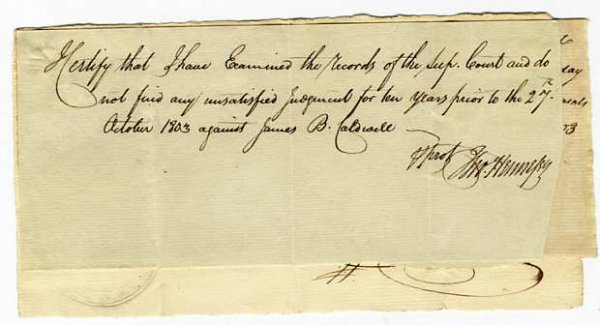 I Certify that I have Examined the records of the Sup. Court and do
not find any unsatisfied Judgment for ten Years prior to the 27th.
October 1803 against James B. Caldwell
03